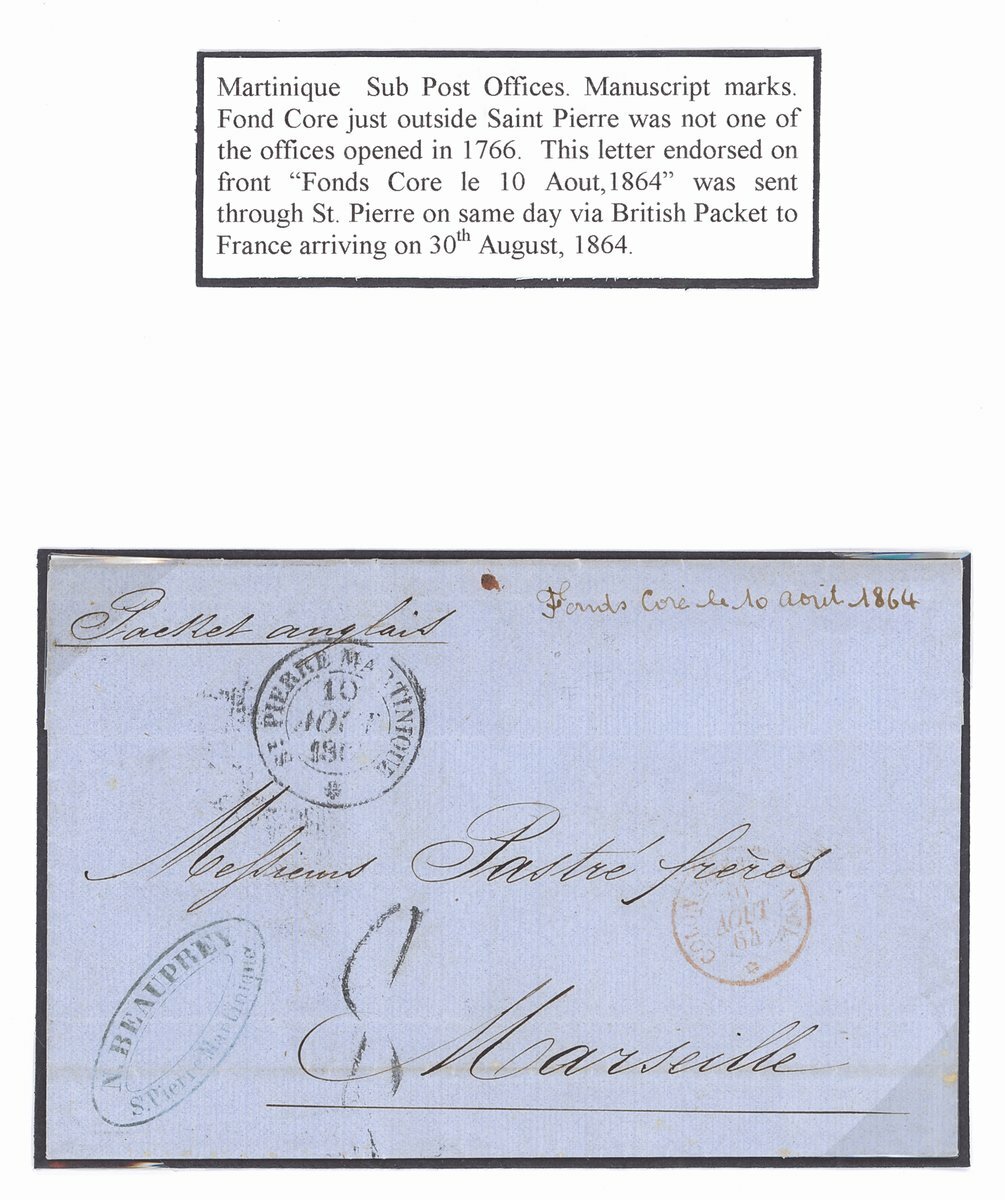 Martinique Sub Post Offices. Manuscript marks.
Fond Core just outside Saint Pierre was not one of
the offices opened in 1766. This letter endorsed on
front “Fonds Core le 10 Aout,1864” was sent
through St. Pierre on same day via British Packet to
France arriving on 30th August, 1864.
Fonds Coré le 10 aout 1864
Packet anglais
ST. PIERRE MARTINIQUE
10
AOUT
Messieurs Pastré frères
AOUT
64
N. BEAUPREY
St. Pierre Martinique
8
Marseille